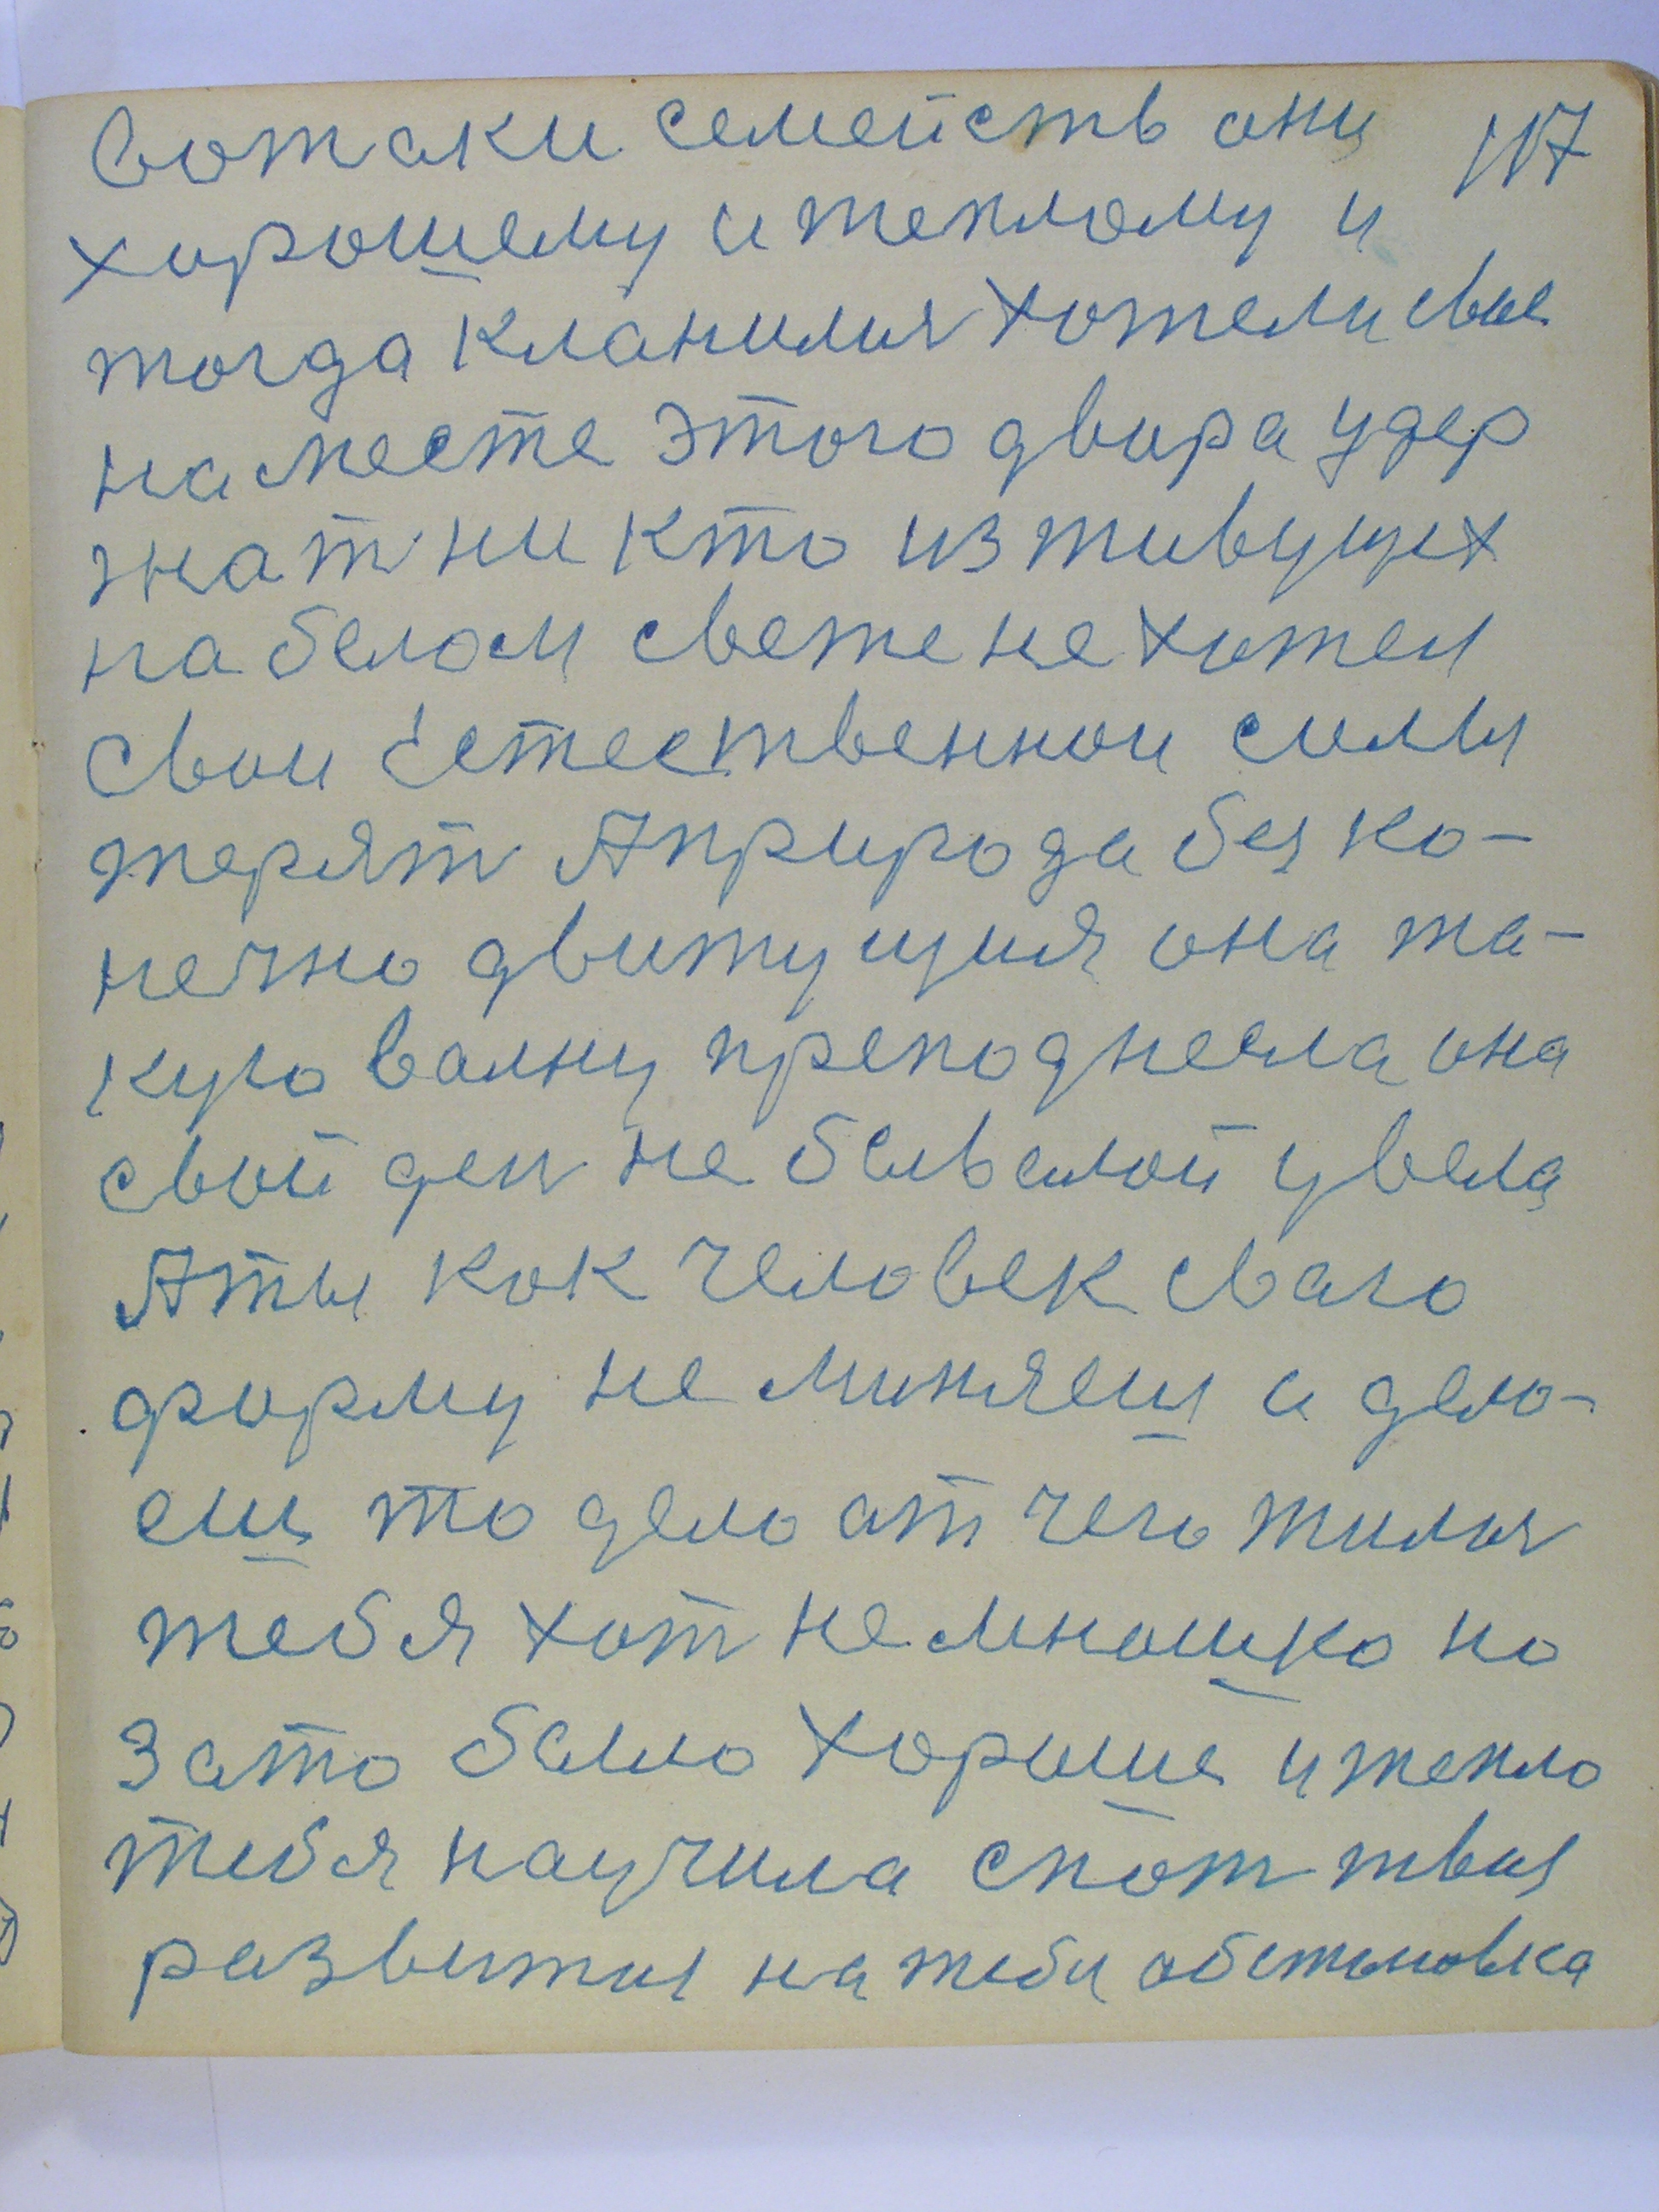 вот аки семейств они 117
хорошему и теплому и
тогда кланилия хотели свое
на месте этого двора удер
жат ни кто из живущих
на белом свете не хотел
свои естественнои силы
терят А природа без ко-
нечно движущия она та-
кую валну преподнесла она
свой ден не бывалой увела
А ты как человек сваго
форму не миняеш и дело-
еш то дело от чего жилия
тебя хот немношко но
зато было хороше и тепло
тибя научила спат твая
развития на тебя обстановка